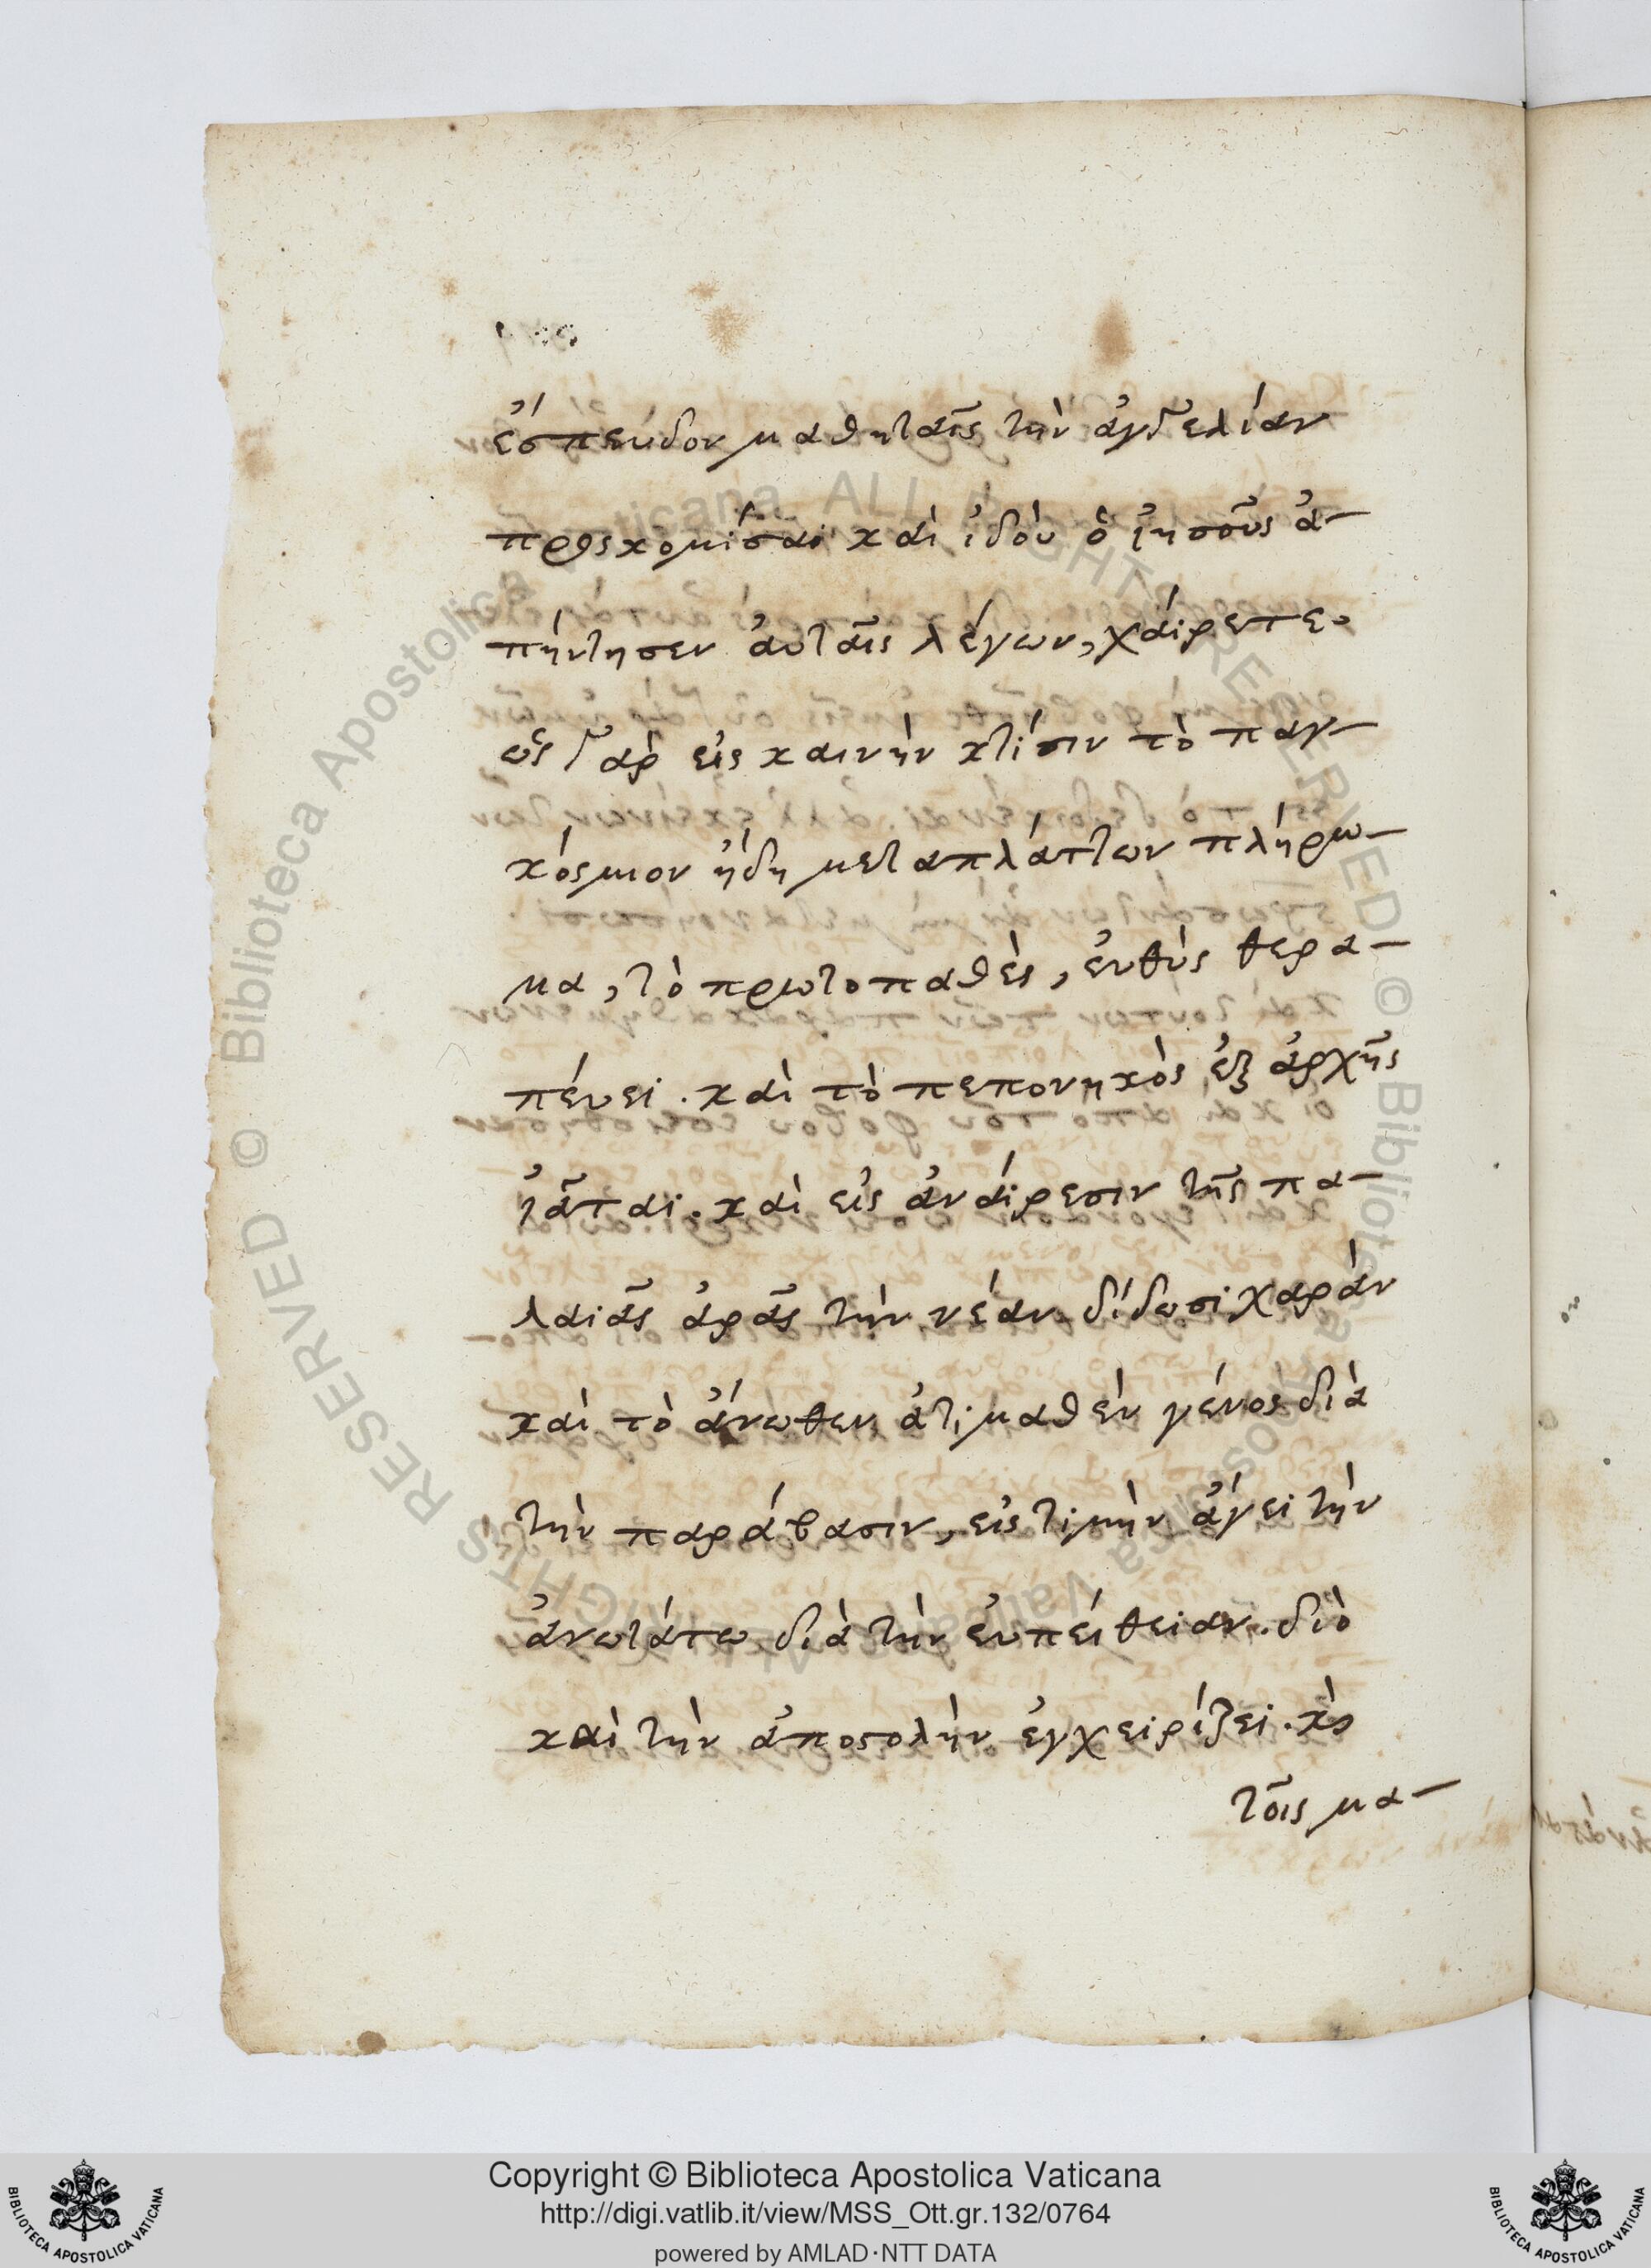 ἔσπευδον μαθηταῖς τὴν ἀγγελίαν
προσκομίσαι καὶ ἰδοὺ ὁ ἰησοῦς ἀ-
πήντησεν ἀυταῖς λέγων, χάιρετε.
ὡς γὰρ εἰς καινὴν κτίσιν τὸ παγ-
κόσμιον ἤδη μεταπλάττων πλήρω-
μα, τὸ πρωτοπαθὲς, ἐυθὺς θερα-
πέυει. καὶ τὸ πεπονηκὸς ἐξ ἀρχῆς
ἰᾶται. καὶ εἰς ἀνάιρεσιν τῆς πα-
λαιᾶς ἀρᾶς τὴν νέαν δίδωσι χαράν
καὶ τὸ ἄνωθεν ἀτιμαθὲν γένος διὰ
τὴν παράβασιν, εἰς τιμὴν ἄγει τὴν
ἀνωτάτω διὰ τὴν ἐυπείθειαν. διὸ
καὶ τὴν ἀποστολὴν ἐγχειρίζει. κὶ
τοῖς μα-
Copyright © Biblioteca Apostolica Vaticana
http://digi.vatlib.it/view/MSS_Ott.gr.132/0764
powered by AMLAD·NTT DATA
BIBLIOTECA APOSTOLICA VATICANA
BIBLIOTECA APOSTOLICA VATICANA
© Biblioteca Apostolica Vaticana ALL RIGHTS RESERVED © Biblioteca Apostolica Vaticana ALL RIGHTS RESERVED